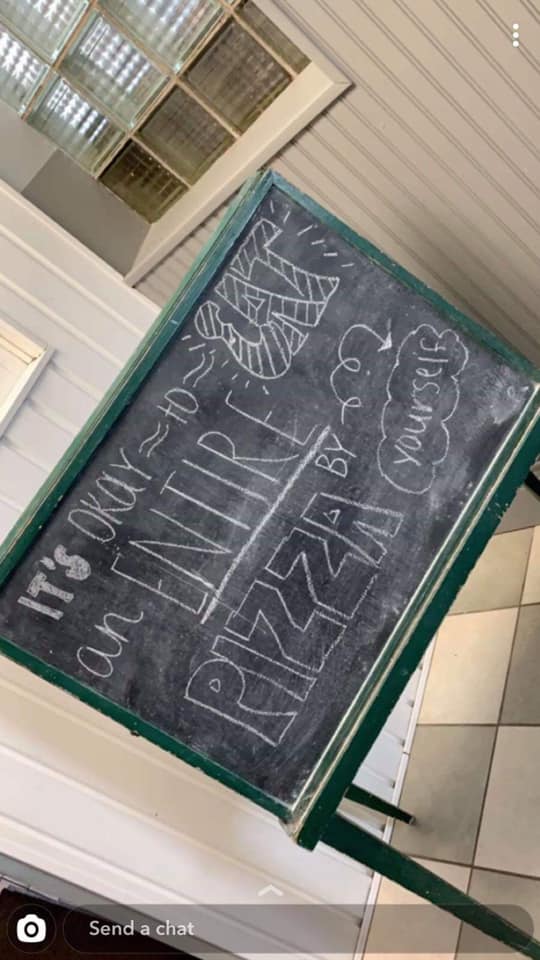 IT'S OKAY ~ to ~ EAT
an ENTIRE
PIZZA BY
yourself
Send a chat